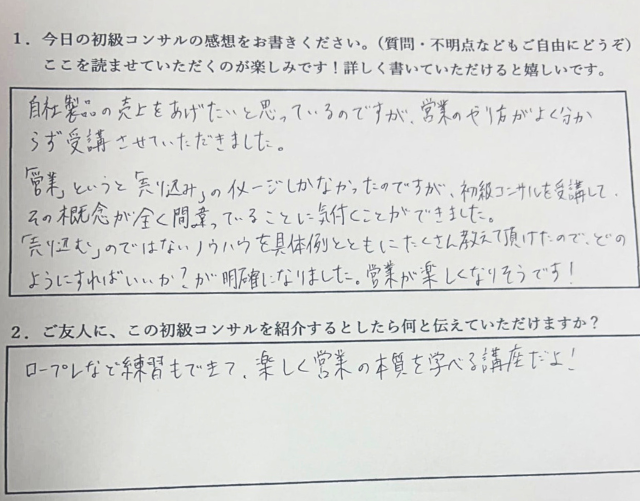 1．今日の初級コンサルの感想をお書きください。（質問・不明点などもご自由にどうぞ）
ここを読ませていただくのが楽しみです！詳しく書いていただけると嬉しいです。
自社製品の売上をあげたいと思っているのですが、営業のやり方がよく分か
らず受講させていただきました。
「営業」というと「売り込み」のイメージしかなかったのですが、初級コンサルを受講して、
その概念が全く間違っていることに気付くことができました。
「売り込む」のではないノウハウを具体例とともにたくさん教えて頂けたので、どの
ようにすればいいか？が明確になりました。営業が楽しくなりそうです！
2．ご友人に、この初級コンサルを紹介するとしたら何と伝えていただけますか？
ロープレなど練習もできて、楽しく営業の本質を学べる講座だよ！